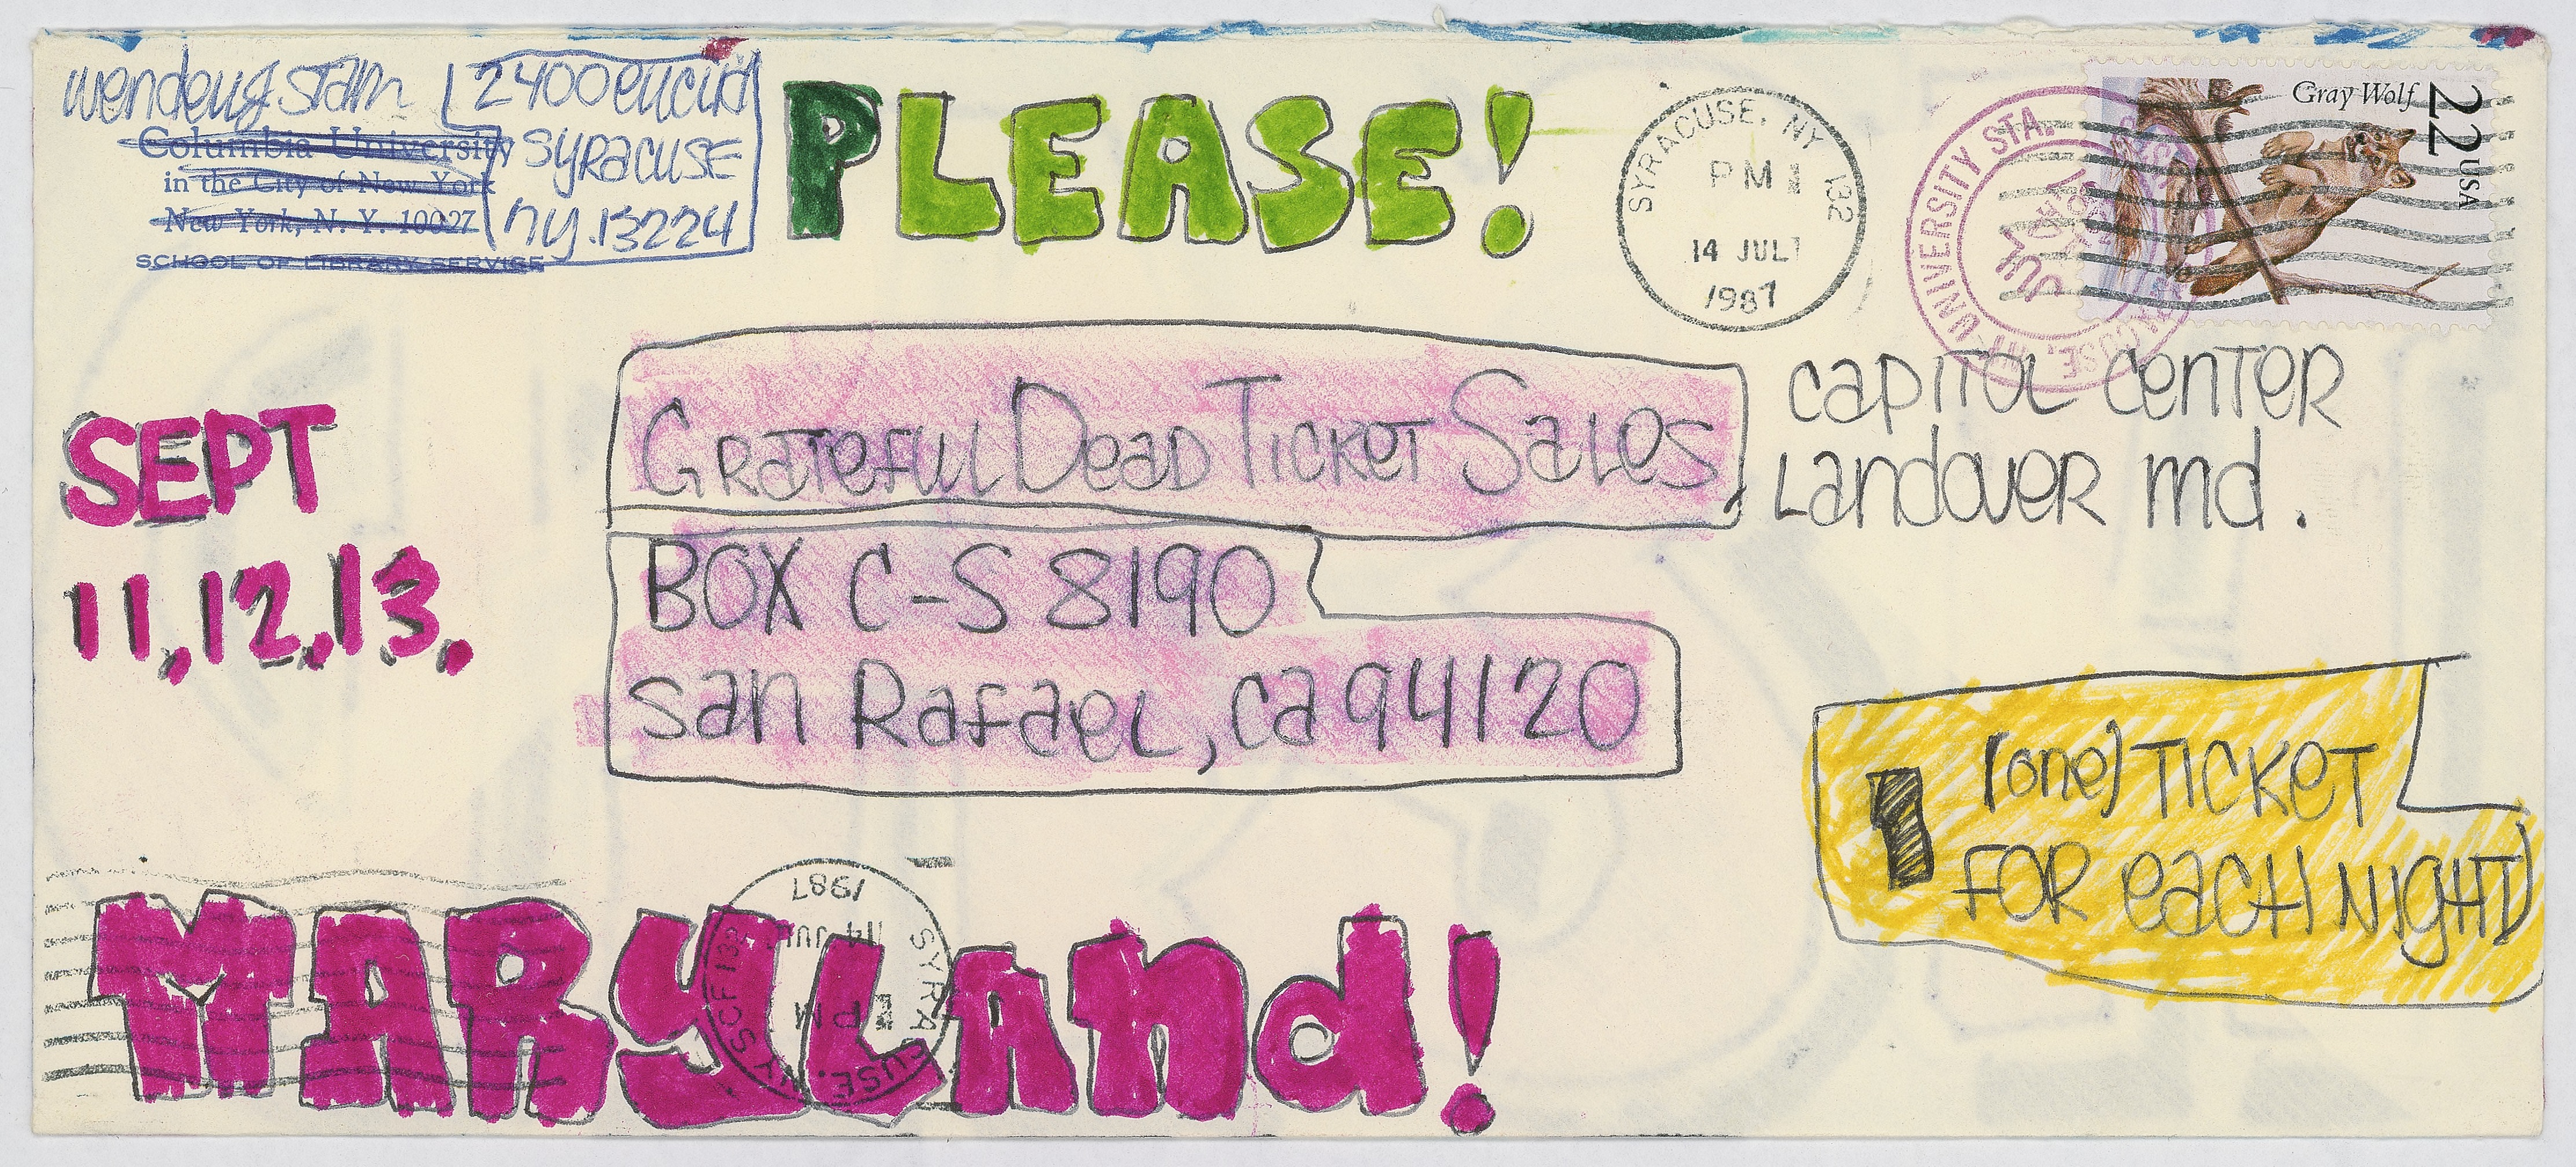 wendeug stam
2400 euclid
SYRACUSE
ny. 13224
Columbia University
in the City of New York
New York, N. Y. 10027
SCHOOL OF LIBRARY SERVICE
PLEASE!
SYRACUSE, NY 132
PM
14 JUL
1987
UNIVERSITY STA.
Gray Wolf
22 USA
Grateful Dead Ticket Sales
BOX C-S 8190
San Rafael, ca 94120
capitol center
Landover md.
SEPT
11,12,13.
1 (one) TICKET
FOR each NIGHT
MARYLand!
1987
14 JUL
PM
SYRACUSE, NY SCF 132